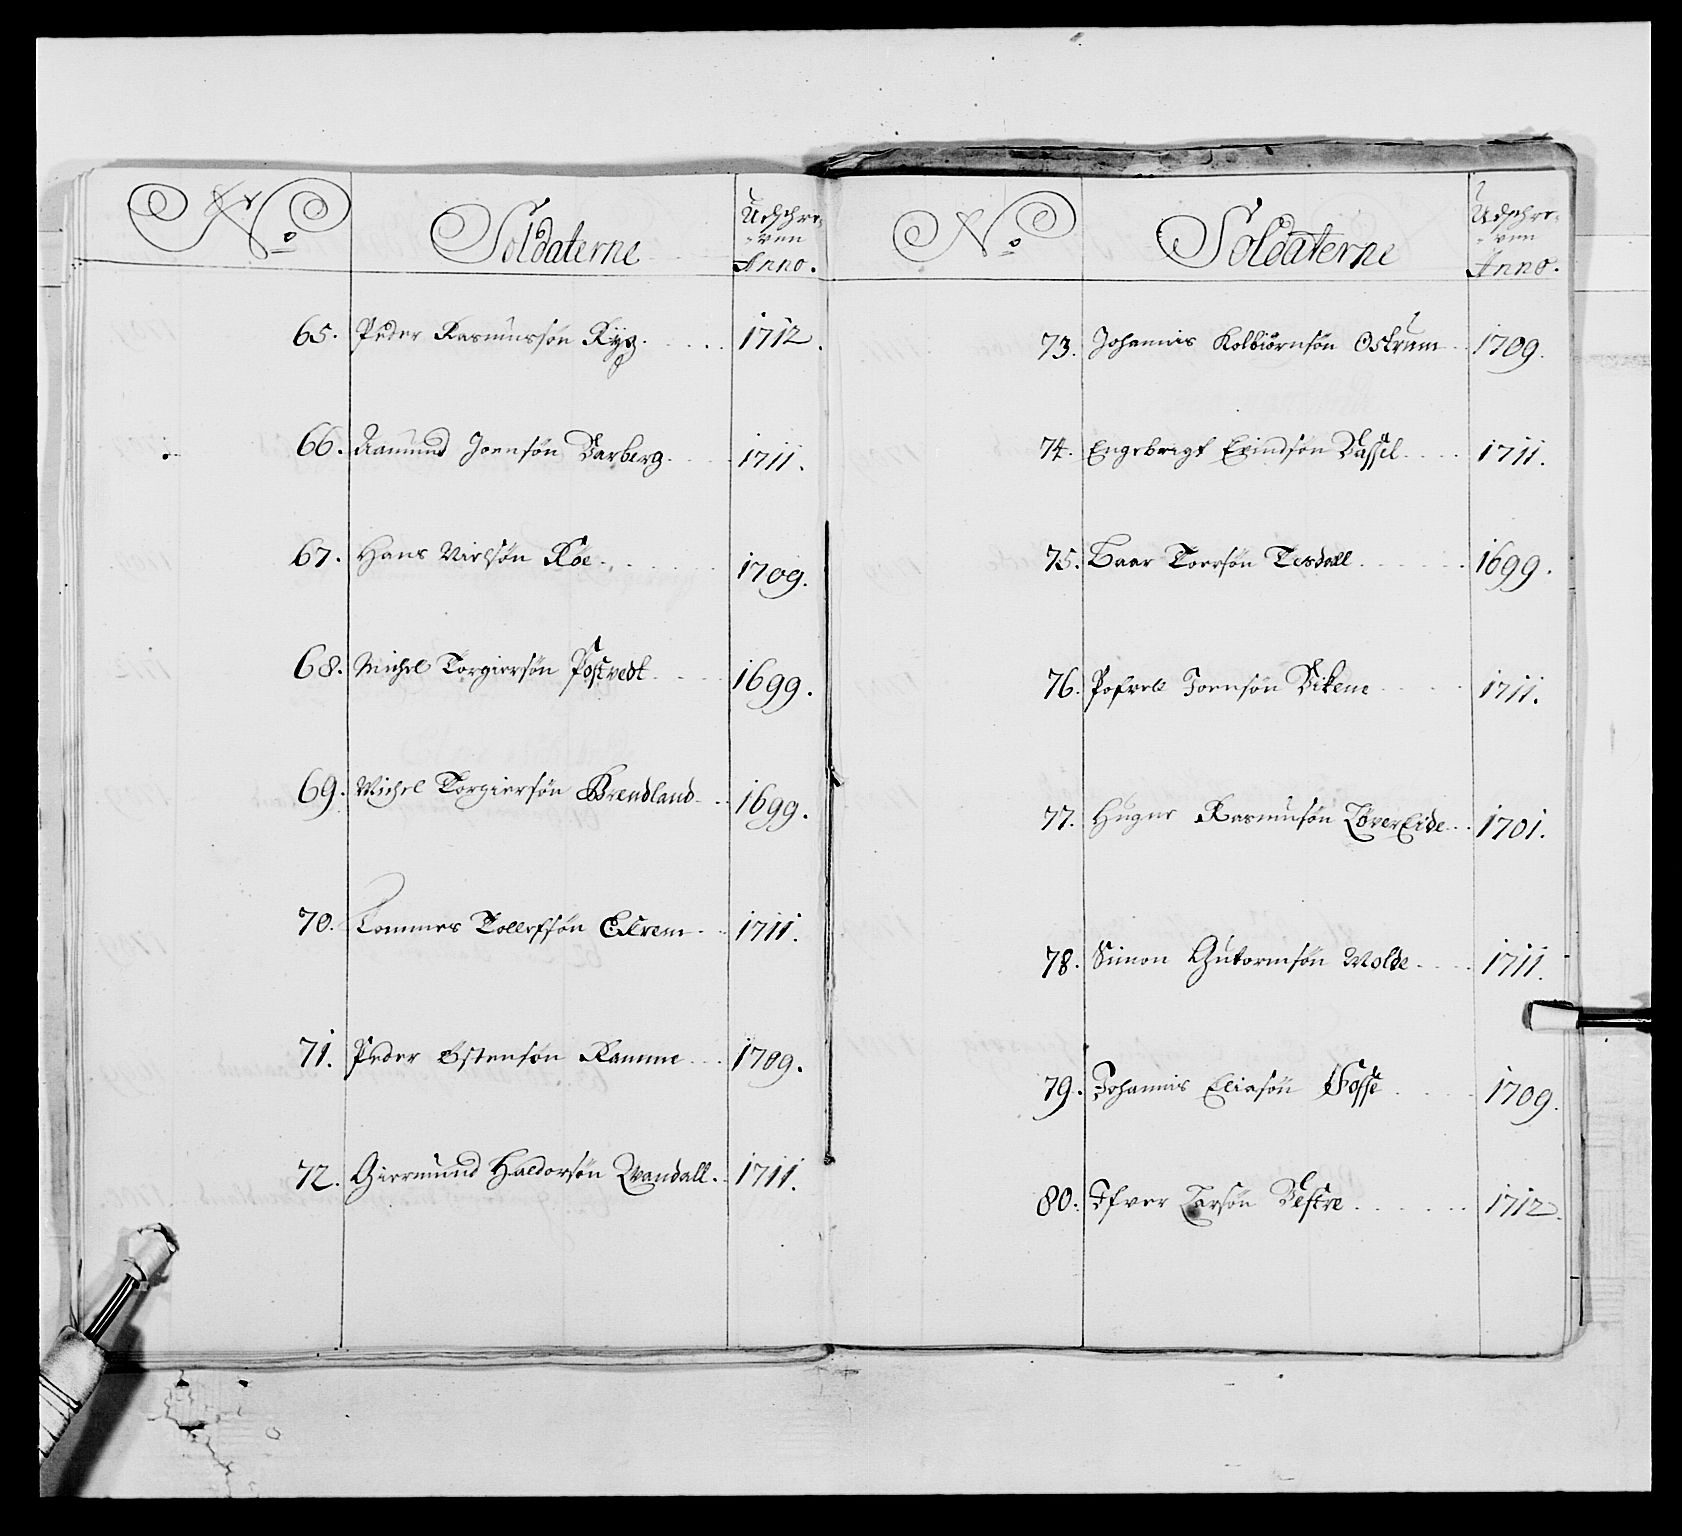 No
Soldaterne
Udschre-
-ven
Anno.
65. Peder Rasmussøn Ryg. 1712.
66. Aamund Joensøn Barberg. 1711.
67. Hans Nielsøn Røe. 1709.
68. Michel Torgiersøn Postvedt. 1699.
69. Michel Torgiersøn Brendland. 1699.
70. Tommes Tollefsøn 1711.
71. Peder Østensøn Ramme 1709.
72. Giermund Haldorsøn Wandall. 1711.
No
Soldaterne
Udschre-
-ven
Anno.
73. Johannis Kolbiørnsøn Ostrum 1709.
74. Engebrigt Evindsøn 1711.
75. Baar Torrsøn Tesdall 1699.
76. Joensøn Vikene 1711.
77. Rasmusøn Løvereide 1701.
78. Simon Gutormsøn Molde 1711.
79. Johannis Eliasøn Fosse 1709.
80. Ifver Larsøn Vestre 1712.